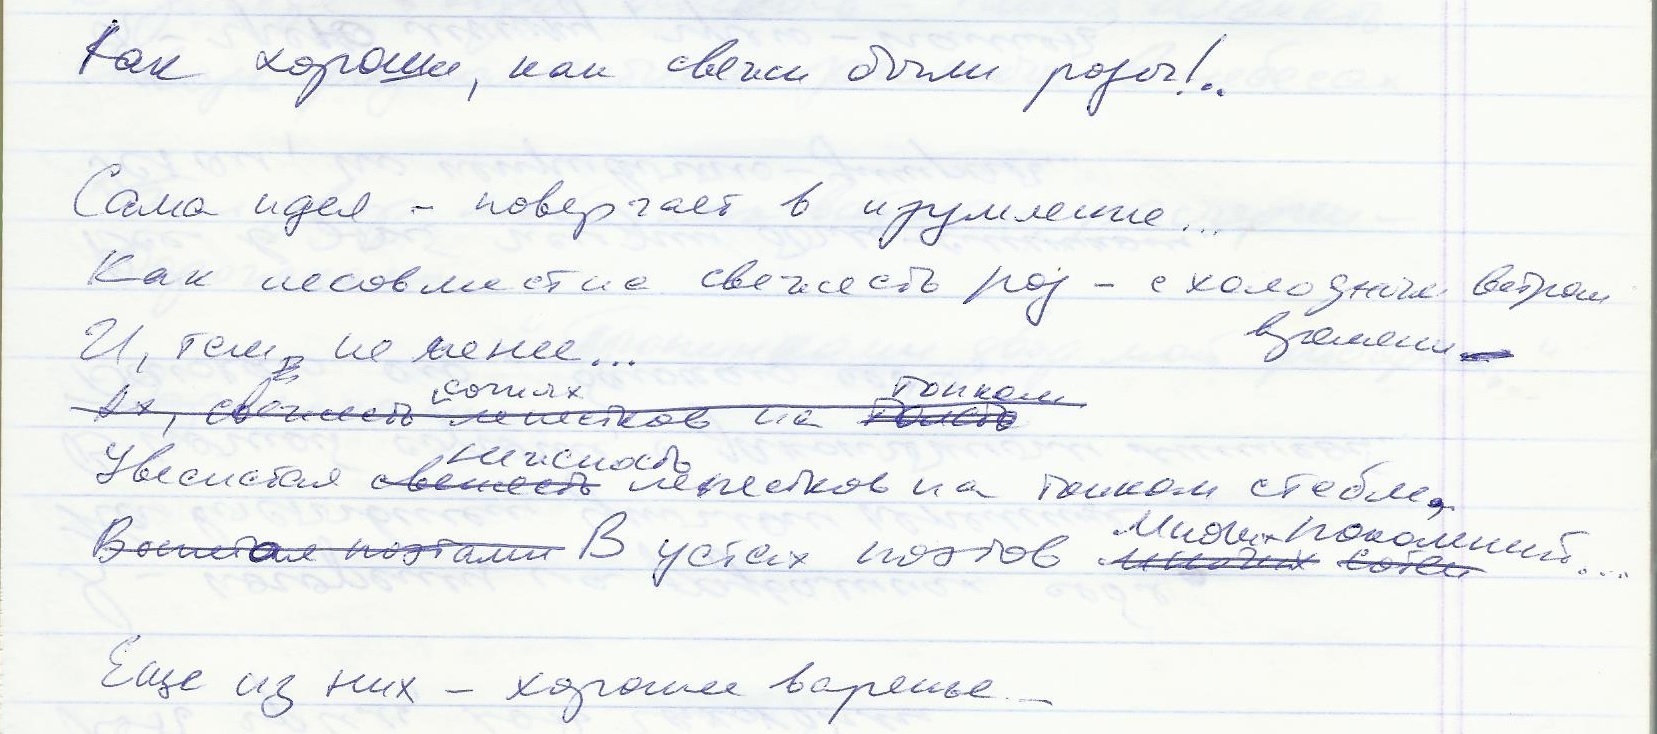 Как хороши, как свежи были розы!..
Сама идея – повергает в изумление...
Как несовместна свежесть роз – с холодным ветром
времени
И, тем не менее...
сочных тонком
Ах, свежесть лепестков на толсто
нежность
Увесистая свежесть лепестков на тонком стебле,
Многих поколений...
Воспетая поэтами В устах поэтов многих сотен
Еще из них – хорошее варенье...